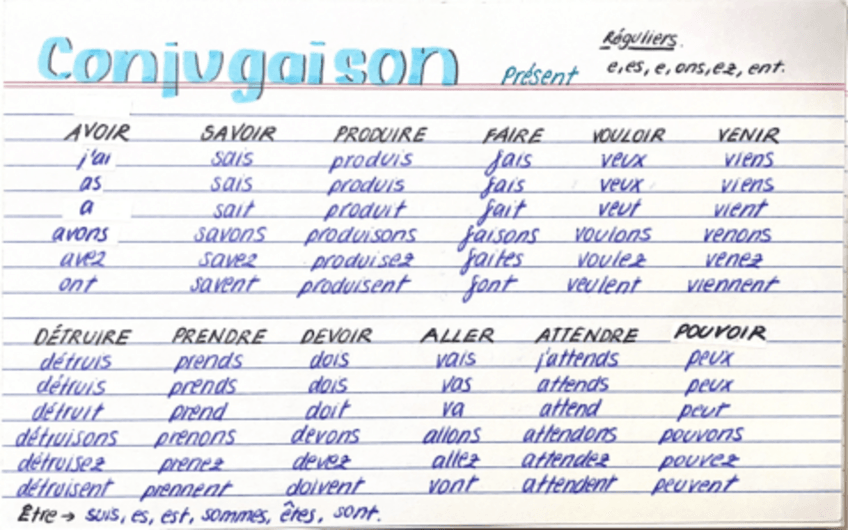 Conjugaison Présent Réguliers.
e, es, e, ons, ez, ent.
AVOIR SAVOIR PRODUIRE FAIRE VOULOIR VENIR
j'ai sais produis fais veux viens
as sais produis fais veux viens
a sait produit fait veut vient
avons savons produisons faisons voulons venons
avez savez produisez faites voulez venez
ont savent produisent font veulent viennent
DÉTRUIRE PRENDRE DEVOIR ALLER ATTENDRE POUVOIR
détruis prends dois vais j'attends peux
détruis prends dois vas attends peux
détruit prend doit va attend peut
détruisons prenons devons allons attendons pouvons
détruisez prenez devez allez attendez pouvez
détruisent prennent doivent vont attendent peuvent
Être → suis, es, est, sommes, êtes, sont.